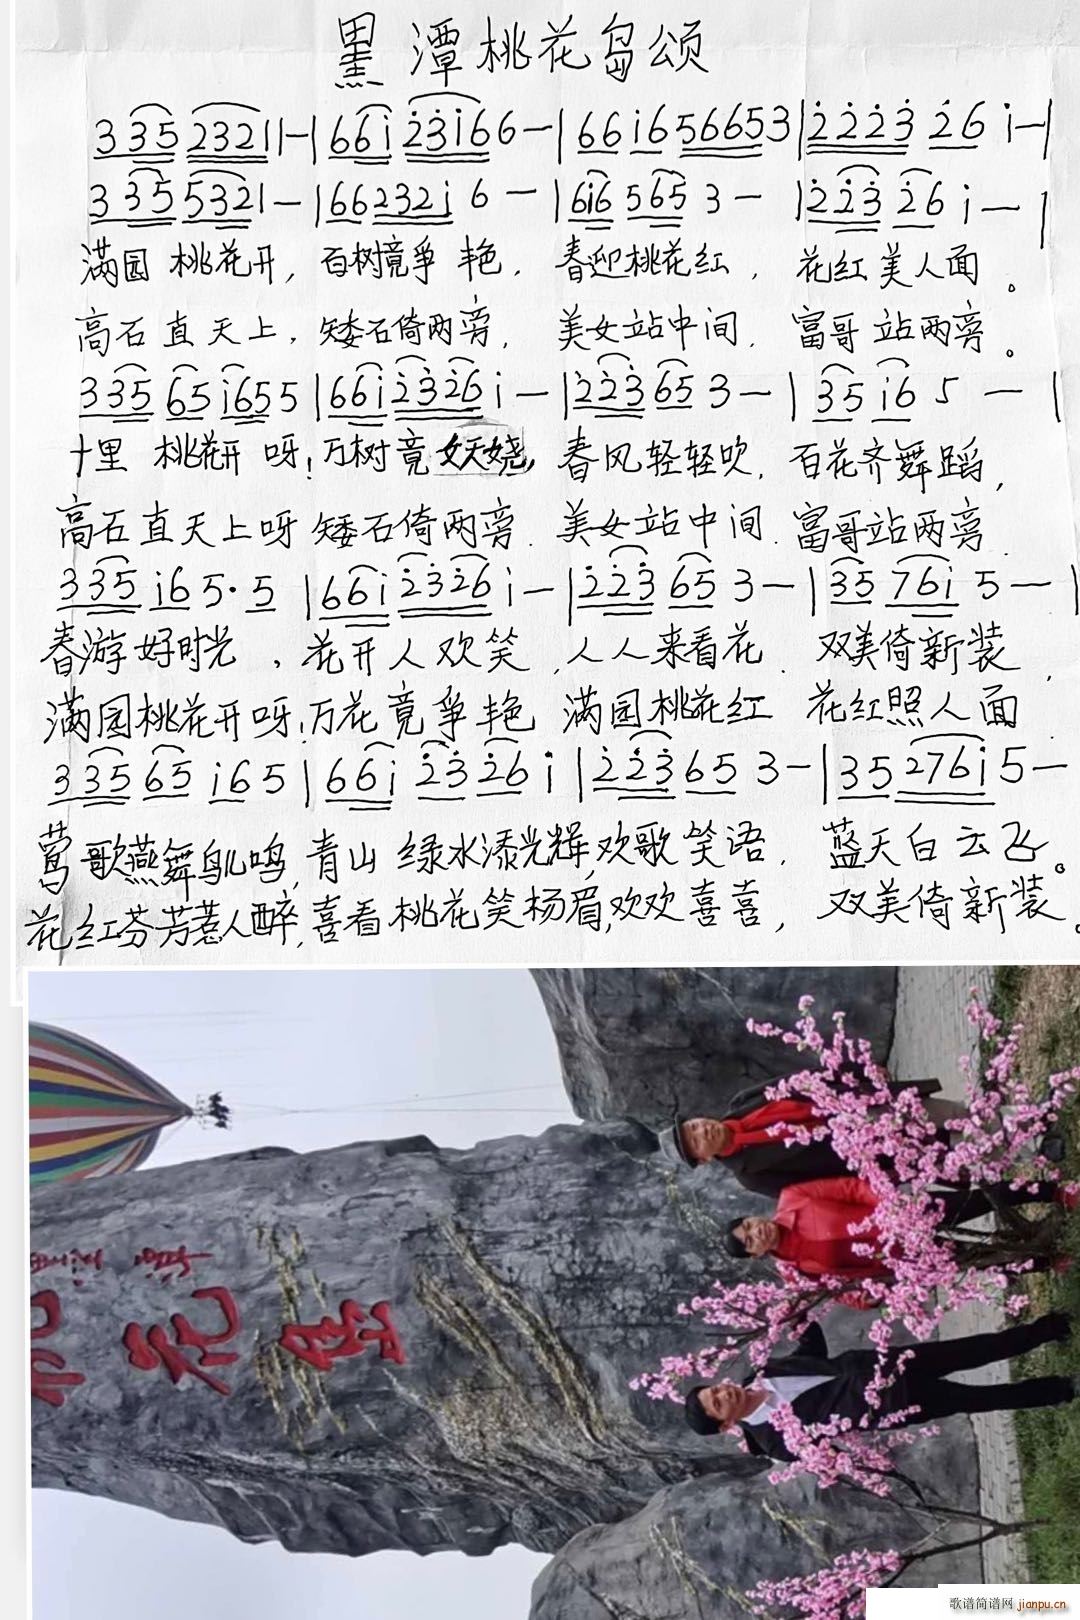 黑潭桃花岛颂
3 3 5 2 3 2 1 1 - | 6 6 i 2 3 i 6 6 - | 6 6 i 6 5 6 6 5 3 | 2 2 2 3 2 6 i - |
3 3 5 5 3 2 1 - | 6 6 2 3 2 i 6 - | 6 i 6 5 6 5 3 - | 2 2 3 2 6 i - |
满园桃花开，百树竟争艳．春迎桃花红，花红美人面。
高石直天上，矮石倚两旁，美女站中间．富哥站两旁。
3 3 5 6 5 i 6 5 5 | 6 6 i 2 3 2 6 i - | 2 2 3 6 5 3 - | 3 5 i 6 5 - |
十里桃花开呀！万树竟妖娆，春风轻轻吹，百花齐舞蹈，
高石直天上呀矮石倚两旁．美女站中间．富哥站两旁．
3 3 5 i 6 5 · 5 | 6 6 i 2 3 2 6 i - | 2 2 3 6 5 3 - | 3 5 7 6 i 5 - |
春游好时光，花开人欢笑，人人来看花．双美倚新装，
满园桃花开呀！万花竟争艳 满园桃花红 花红照人面
3 3 5 6 5 i 6 5 | 6 6 i 2 3 2 6 i | 2 2 3 6 5 3 - | 3 5 2 7 6 i 5 -
莺歌燕舞鸟儿鸣，青山绿水添光辉，欢歌笑语，蓝天白云飞。
花红芬芳惹人醉，喜看桃花笑杨眉，欢欢喜喜，双美倚新装。
潭
花岛
歌谱简谱网 jianpu.cn